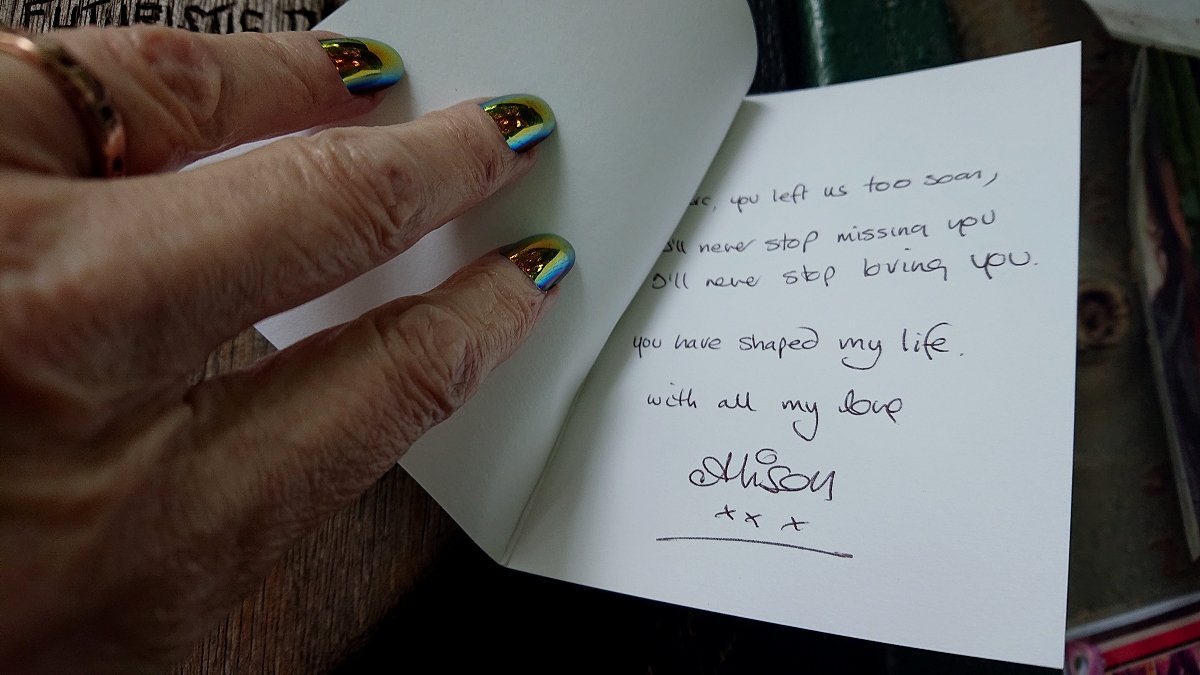 FUTURISTIC
you left us too soon,
I'll never stop missing you
I'll never stop loving you.
you have shaped my life.
with all my love
Allison
xx x